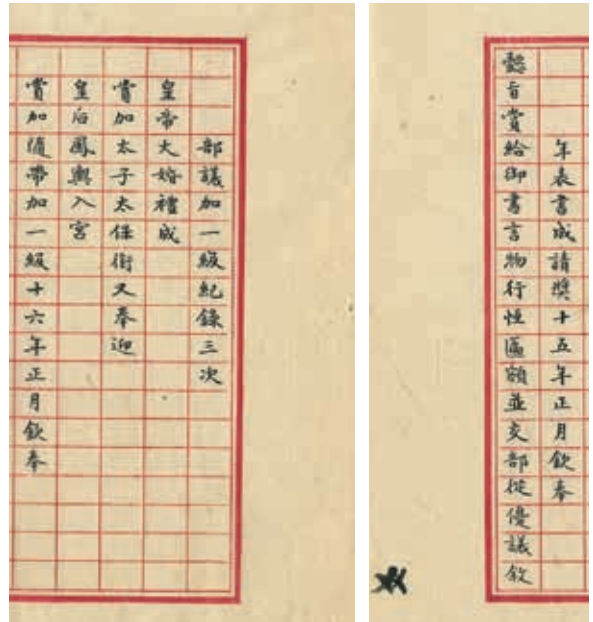 年表書成請獎十五年正月欽奉
懿旨賞給御書言物行恒匾額並交部從優議敘
部議加一級紀錄三次
皇帝大婚禮成
賞加太子太保銜又奉迎
皇后鳳輿入宮
賞加隨帶加一級十六年正月欽奉